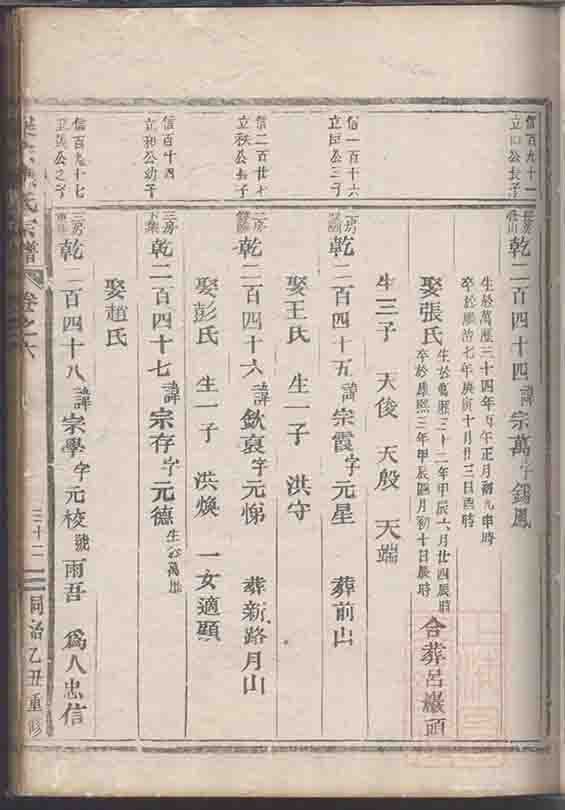 信百九十一
立口公長子
乾二百四十四諱宗萬字錫鳳
生於萬歷三十四年丙午正月初九申時
卒於順治七年庚寅十月廿三日酉時
娶張氏
生於萬歷三十二年甲辰六月廿四辰時
卒於康熙三年甲辰四月初十日辰時
合葬呂巖頭
生三子 天俊 天殷 天端
信一百十六
公三子
乾二百四十五諱宗霞字元星 葬前山
娶王氏 生一子 洪守
信二百廿七
立秩公長子
乾二百四十六諱欽哀字元悌 葬新路月山
娶彭氏 生一子 洪煥 一女適顯
信百十四
立和公幼子
三房
乾二百四十七諱宗存字元德
娶趙氏
信百九十七
公之子
三房
乾二百四十八諱崇學字元棱號雨吾 為人忠信
氏宗譜 卷之六 三十二 同治乙丑重修